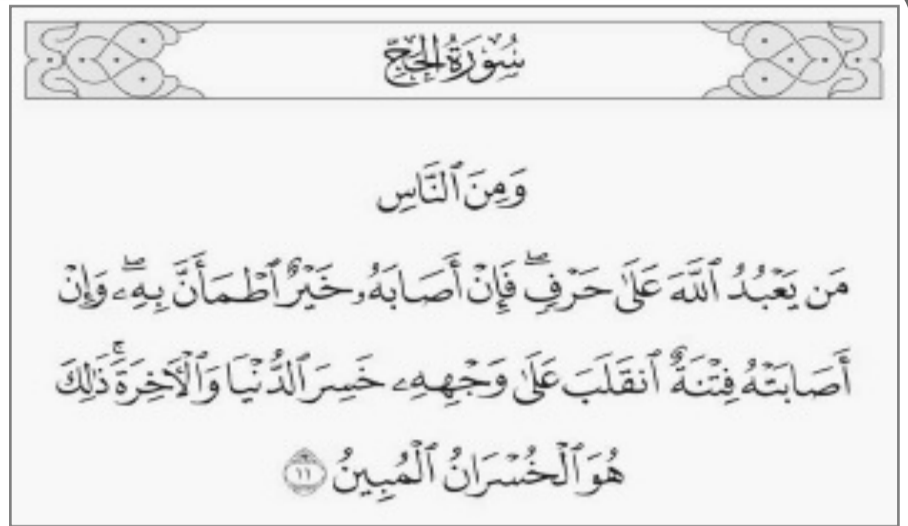 سُورَةُ الْحَجِّ
وَمِنَ ٱلنَّاسِ
مَن يَعْبُدُ ٱللَّهَ عَلَىٰ حَرْفٍۖ فَإِنْ أَصَابَهُۥ خَيْرٌ ٱطْمَأَنَّ بِهِۦۖ وَإِنْ
أَصَابَتْهُ فِتْنَةٌ ٱنقَلَبَ عَلَىٰ وَجْهِهِۦ خَسِرَ ٱلدُّنْيَا وَٱلْأَخِرَةَۚ ذَٰلِكَ
هُوَ ٱلْخُسْرَانُ ٱلْمُبِينُ ١١